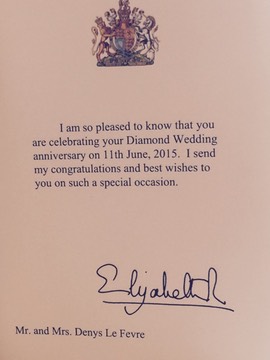 I am so pleased to know that you
are celebrating your Diamond Wedding
anniversary on 11th June, 2015. I send
my congratulations and best wishes to
you on such a special occasion.
Elizabeth R
Mr. and Mrs. Denys Le Fevre